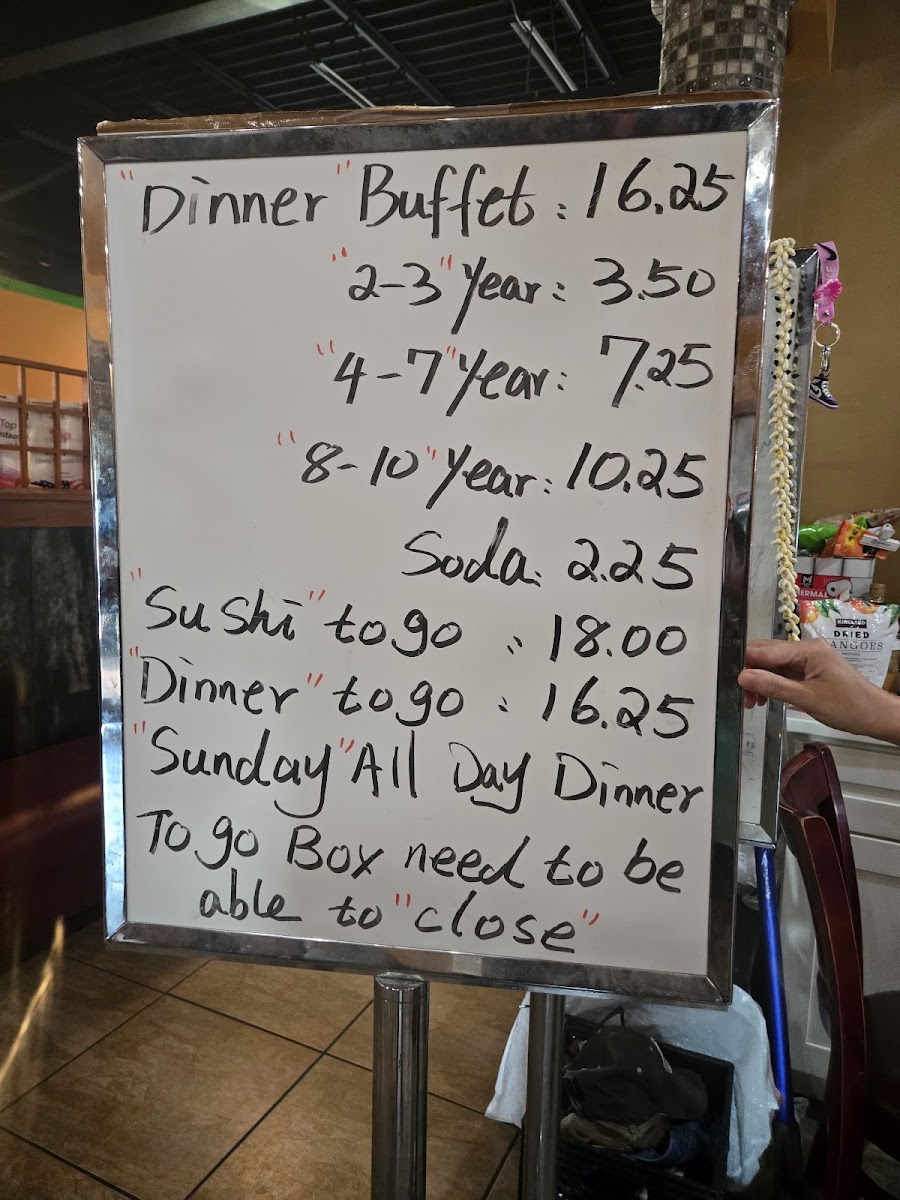 "Dinner" Buffet : 16.25
"2-3" year : 3.50
"4-7" year : 7.25
"8-10" year : 10.25
Soda : 2.25
"Sushi" to go : 18.00
"Dinner" to go : 16.25
"Sunday" All Day Dinner
To go Box need to be
able to "close"
Top
KIRKLAND
DRIED
ANGOES